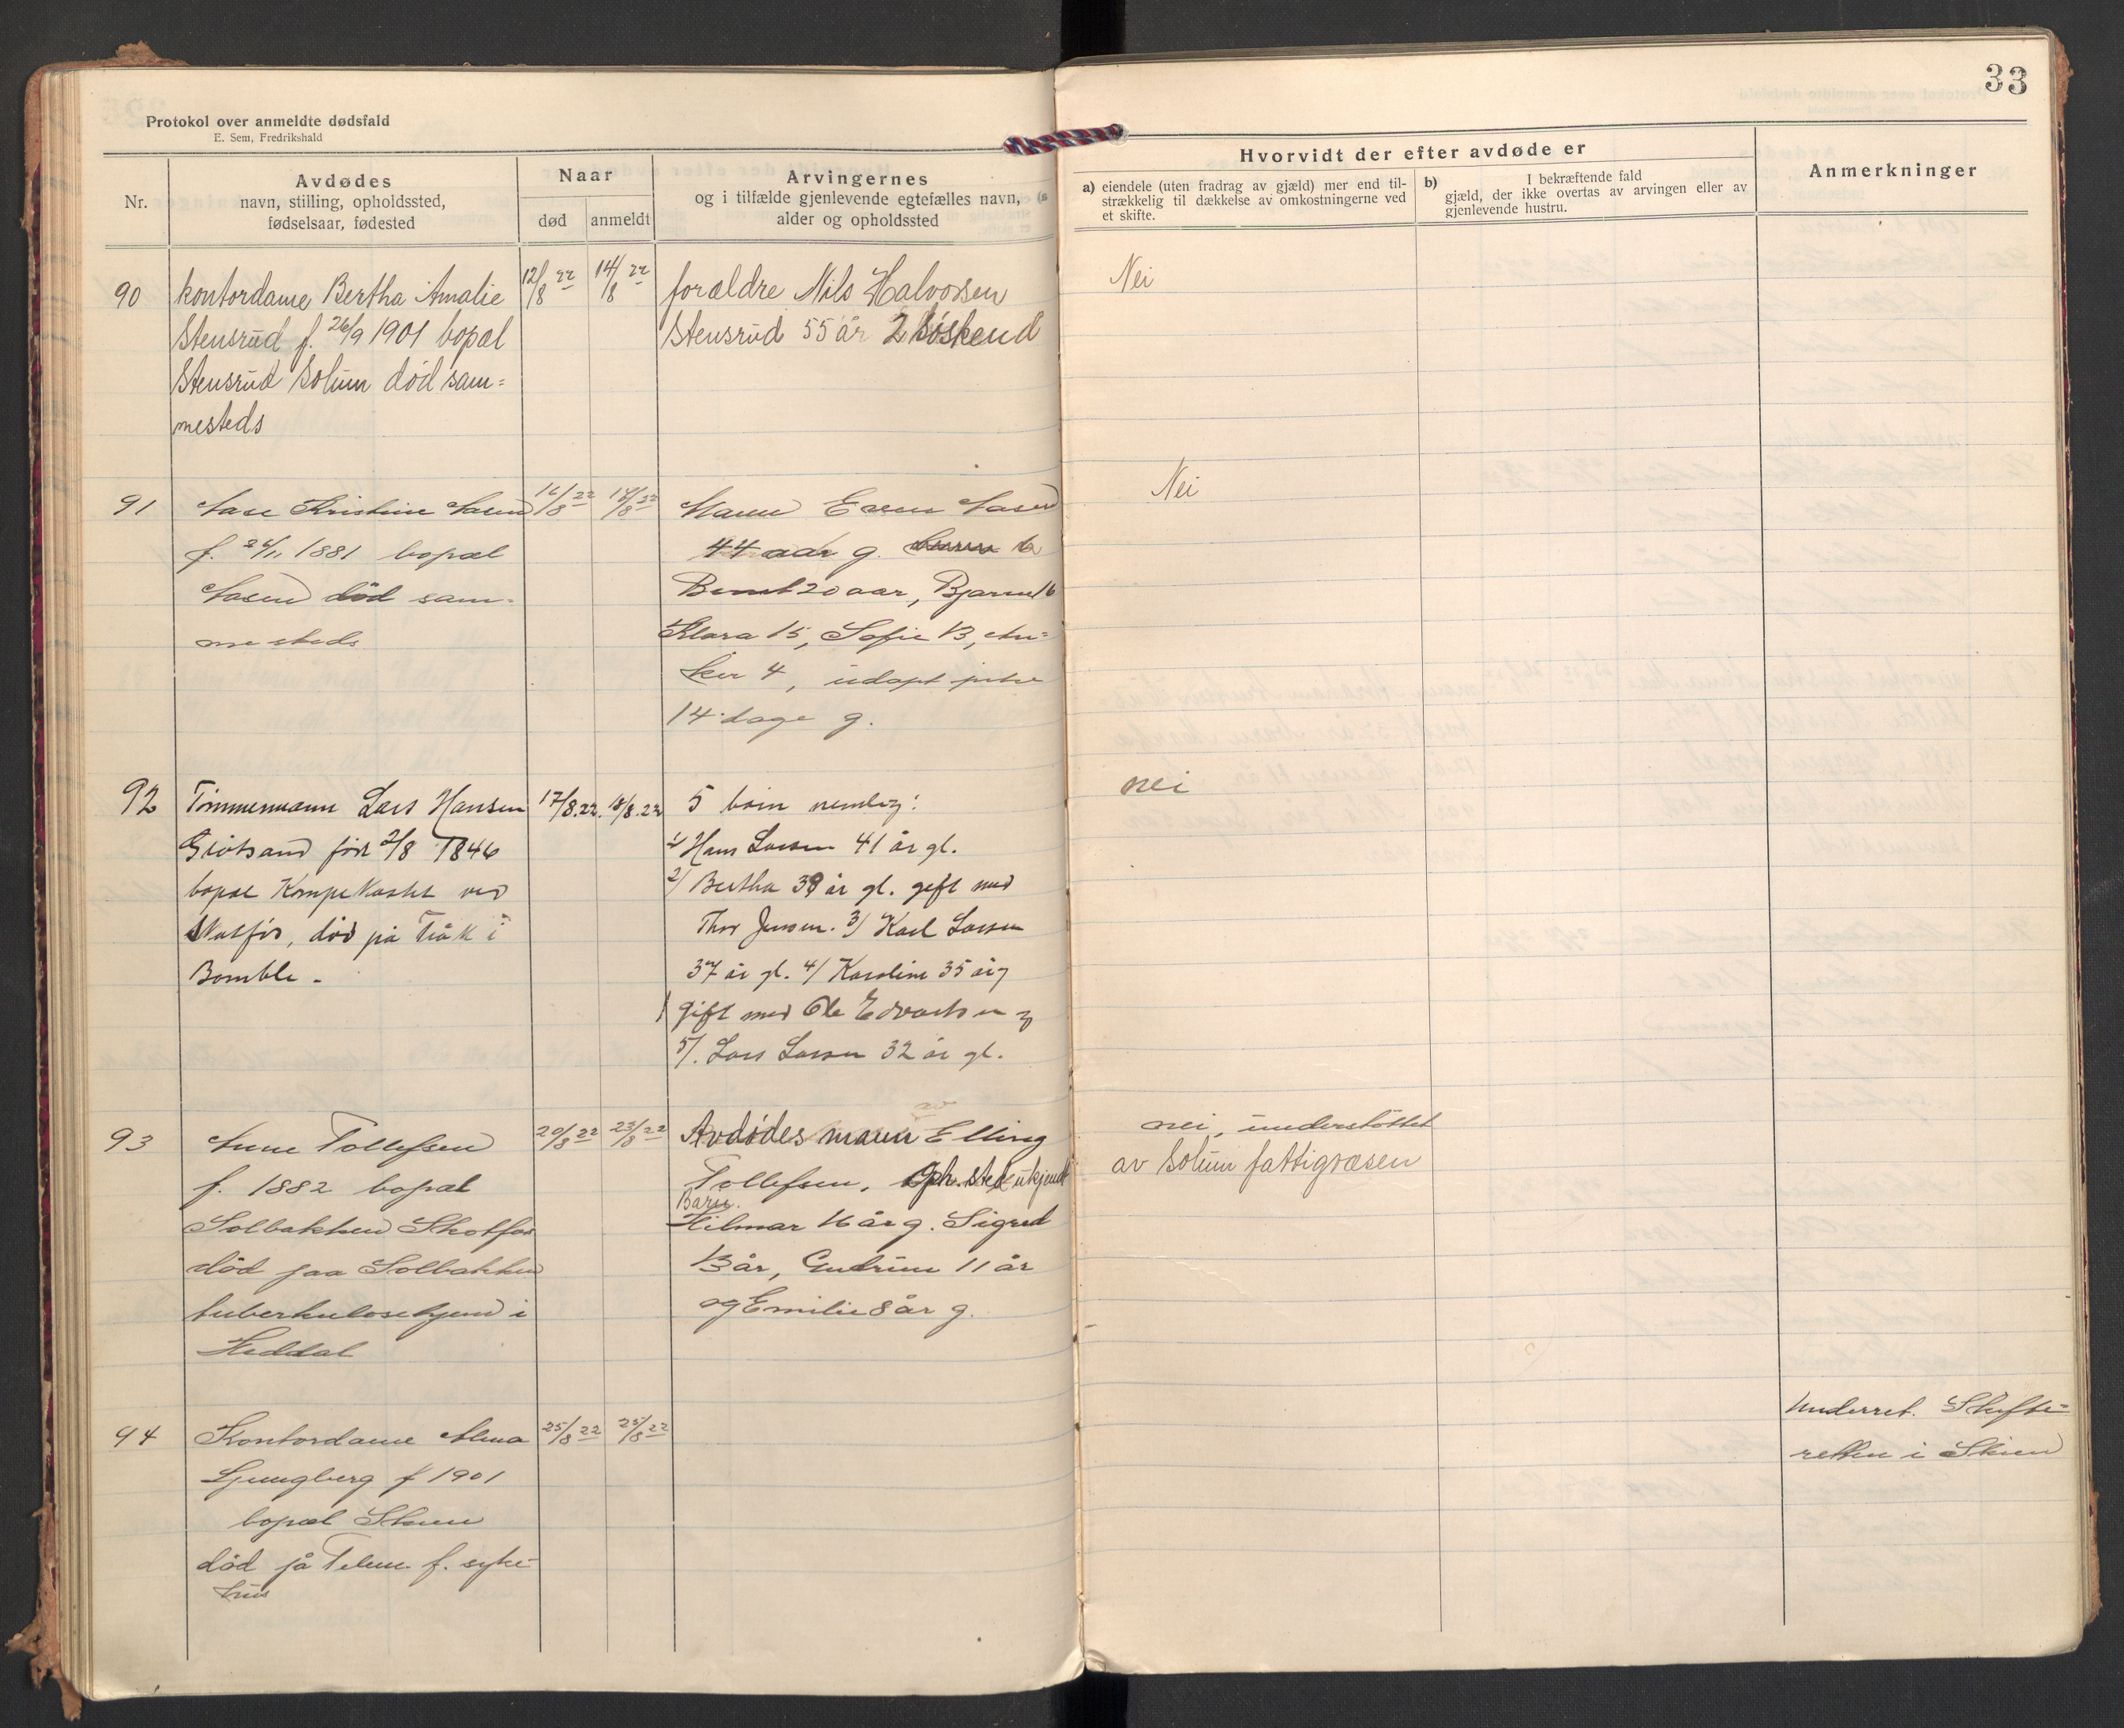 33
Protokol over anmeldte dødsfald
E. Sem, Fredrikshald
Nr.
Avdødes
navn, stilling, opholdssted,
fødselsaar, fødested
Naar
død
anmeldt
Arvingernes
og i tilfælde gjenlevende egtefælles navn,
alder og opholdssted
Hvorvidt der efter avdøde er
a) eiendele (uten fradrag av gjæld) mer end til-
strækkelig til dækkelse av omkostningerne ved
et skifte.
b) I bekræftende fald
gjæld, der ikke overtas av arvingen eller av
gjenlevende hustru.
Anmerkninger
90
kontordame Bertha Amalie
Stensrud f. 26/9 1901 bopæl
Stensrud Solum død sam=
mesteds
12/8 22
14/8 22
forældre Nils Halvorsen
Stensrud 55 år 2 søskend
Nei
91
Aase Kristine Aasen
f. 26/11 1881 bopæl
Aasen død sam-
mesteds
16/8 22
18/8 22
Mann Even Aasen
44 aar g.
Bernt 20 aar, Bjarne 16
Klara 15, Sofie 13, An=
ker 4, udøpt pike
14 dage g.
Nei
92
Tømmermann Lars Hansen
Grøtsand født 2/8 1846
bopæl Kompekastet ved
Skotfos, død på Tråk i
Bamble.
17/8.22.
18/8.22
5 barn nemlig:
1/ Hans Larsen 41 år gl.
2/ Bertha 39 år gl. gift med
Thor Jensen. 3/ Karl Larsen
37 år gl. 4/ Karoline 35 år g
gift med Ole Edvartsen og
5/. Lars Larsen 32 år gl.
nei
93
Anne Tollefsen
f. 1882 bopæl
Solbakken Skotfos
død paa Solbakken
tuberkulosehjem i
Heddal
20/8 22
23/8 22
Avdødes mann Elling
Tollefsen, oph.sted ukjendt
Barn.
Hilmar 16 år g. Sigred
13 år, Gudrun 11 år
og Emilie 8 år g.
nei, understøttet
av Solum fattigvæsen
94
Kontordame Alma
Ljungberg f 1901
bopæl Skien
død på Telem. f. syke-
hus
25/8 22
25/8 22
Underret. Skifte=
retten i Skien